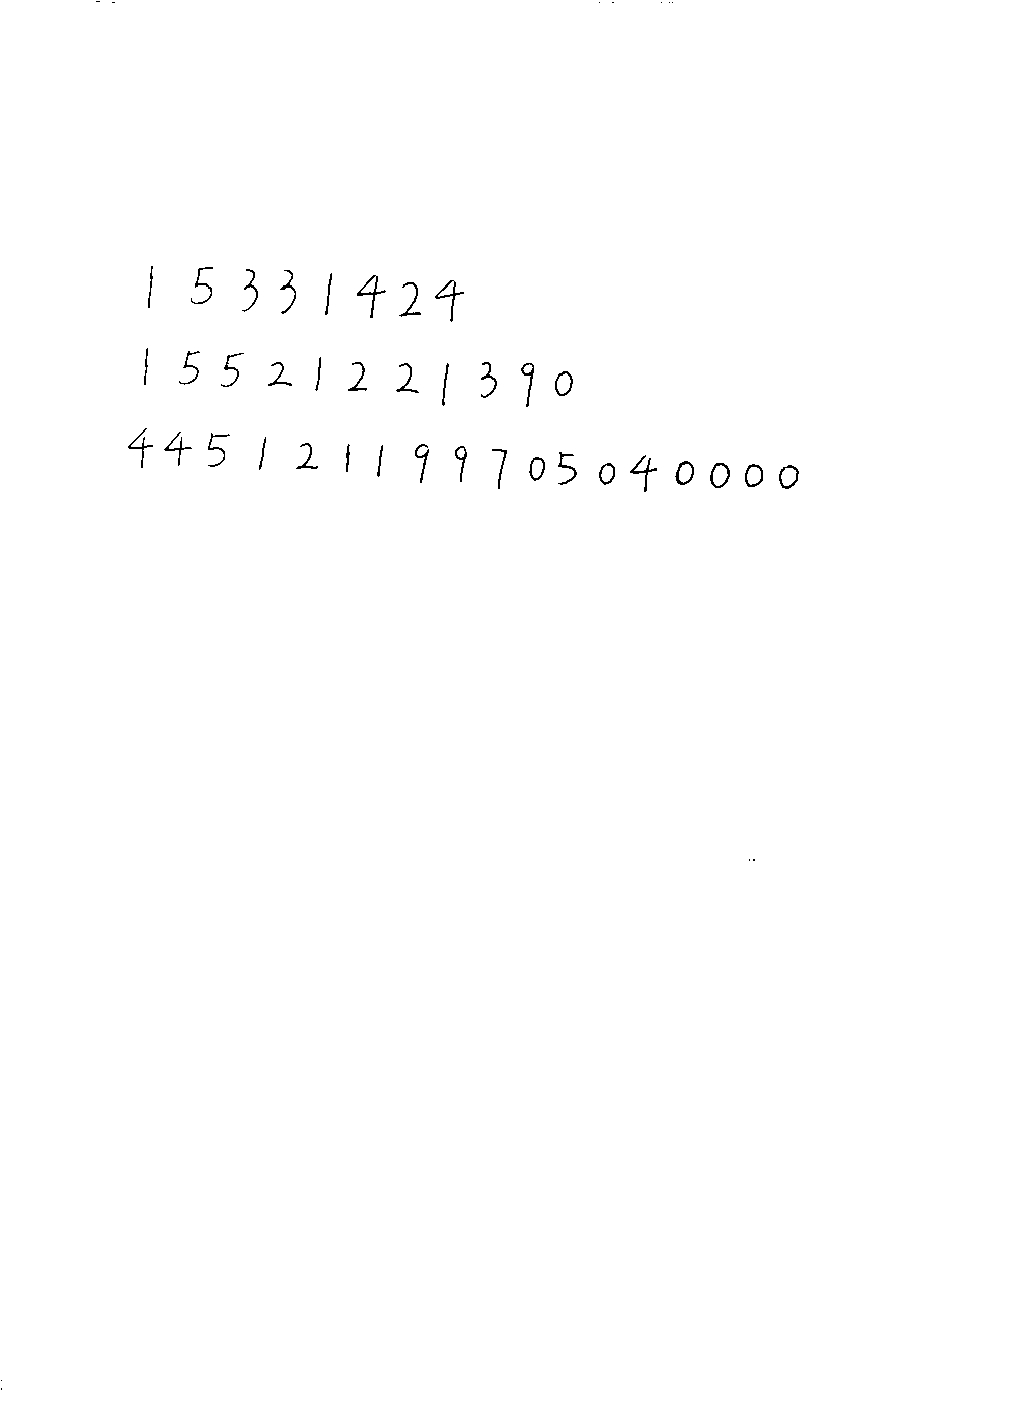 15331424
15521221390
445121199705040000